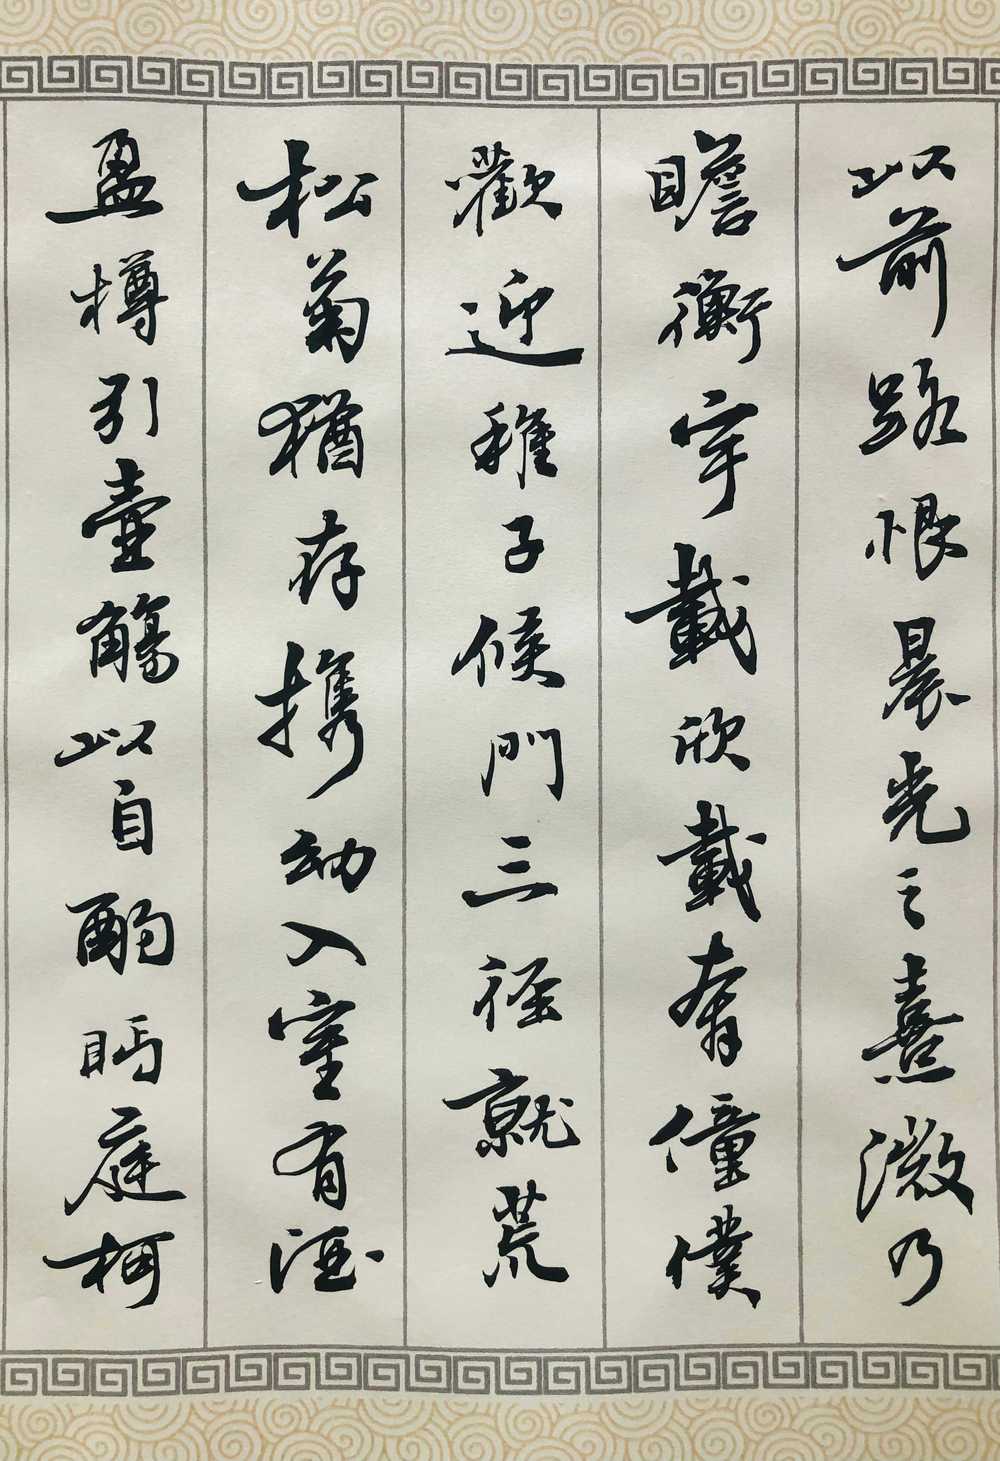 以前路恨晨光之熹微乃
瞻衡宇載欣載奔僮僕
歡迎稚子候門三徑就荒
松菊猶存携幼入室有酒
盈樽引壺觴以自酌眄庭柯